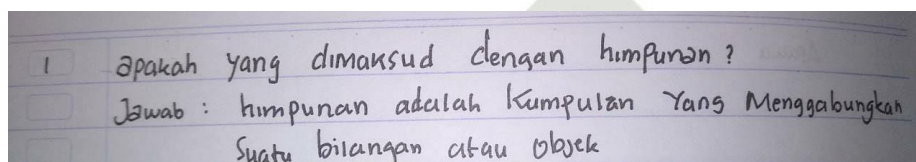 1 apakah yang dimaksud dengan himpunan?
Jawab : himpunan adalah Kumpulan Yang Menggabungkan
Suatu bilangan atau Objek